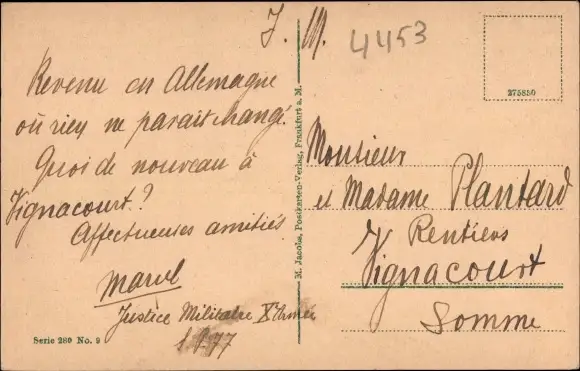 F. M. 4453
275850
Revenu en Allemagne
où rien ne parait changé.
Quoi de nouveau à
Vignacourt?
Affectueuses amitiés
Marcel
Justice Militaire Xe Armée
S.P. 77
Serie 280 No. 9
M. Jacobs, Postkarten-Verlag, Frankfurt a. M.
Monsieur
et Madame Plantard
Rentiers
Vignacourt
Somme